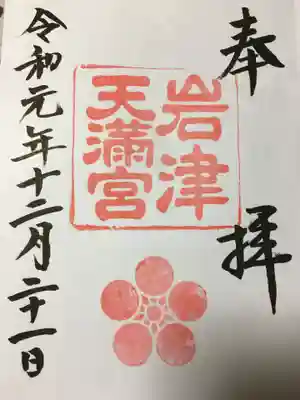 奉拝
岩津
天満宮
令和元年十二月二十一日